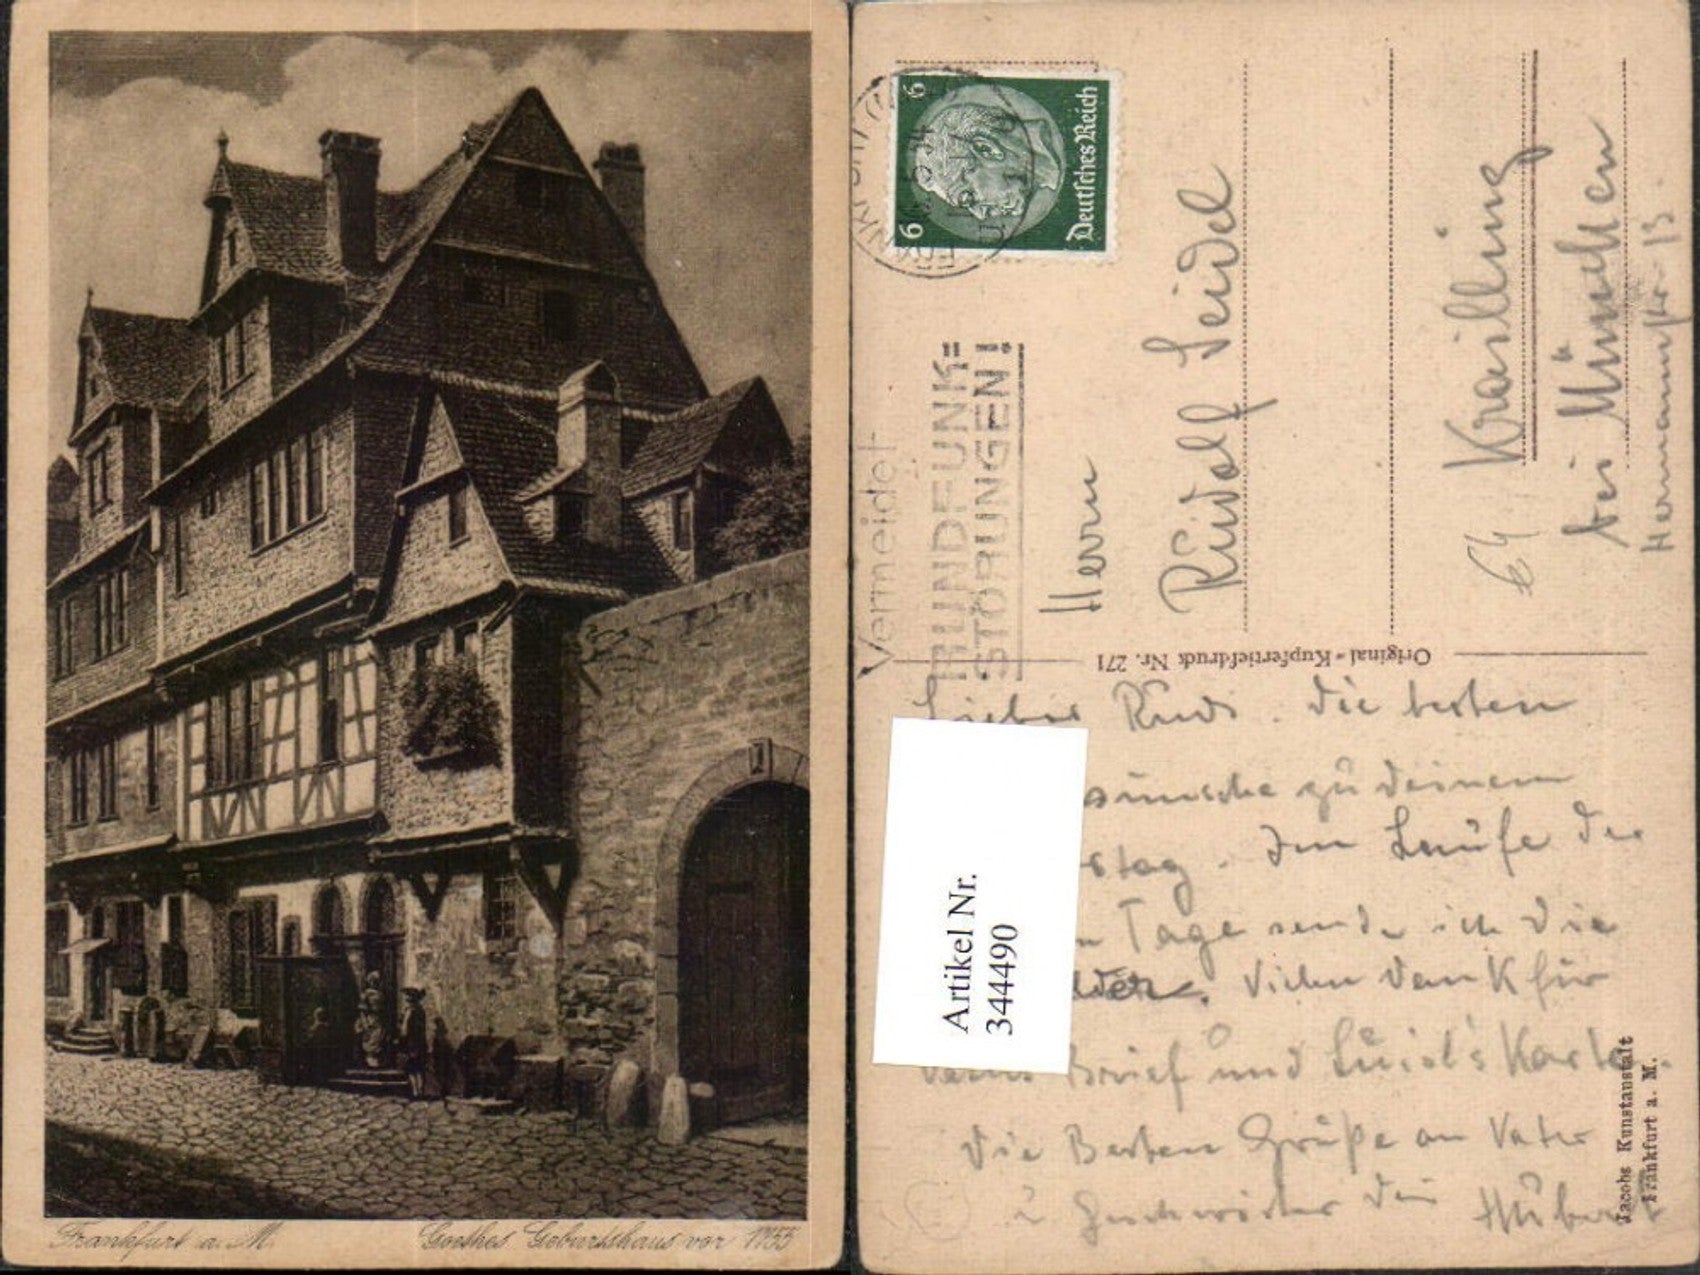 Frankfurt a. M.
Goethes Geburtshaus vor 1755
6
6
Deutsches Reich
Vermeidet
RUNDFUNK=
STÖRUNGEN!
Herrn
Rudolf Seidel
Krailling
bei München
Hermannstr. 13.
Original-Kupfertiefdruck Nr. 271
Lieber Rudi. Die besten
wünsche zu Deinem
stag. Im Laufe der
n Tage sende ich Die
lder. Vielen Dank für
Brief und Luisl's Karte.
Die Besten Grüße an Vater
u Geschwister Dein
Artikel Nr.
344490
Jacobs Kunstanstalt
Frankfurt a. M.